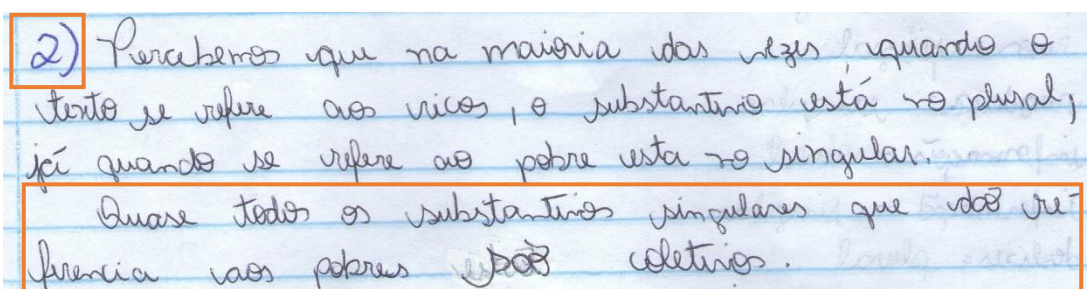 2) Percebemos que na maioria das vezes, quando o
texto se refere aos ricos, o substantivo está no plural;
já quando se refere ao pobre esta no singular.
Quase todos os substantivos singulares que dão re-
ferencia aos pobres são coletivos.